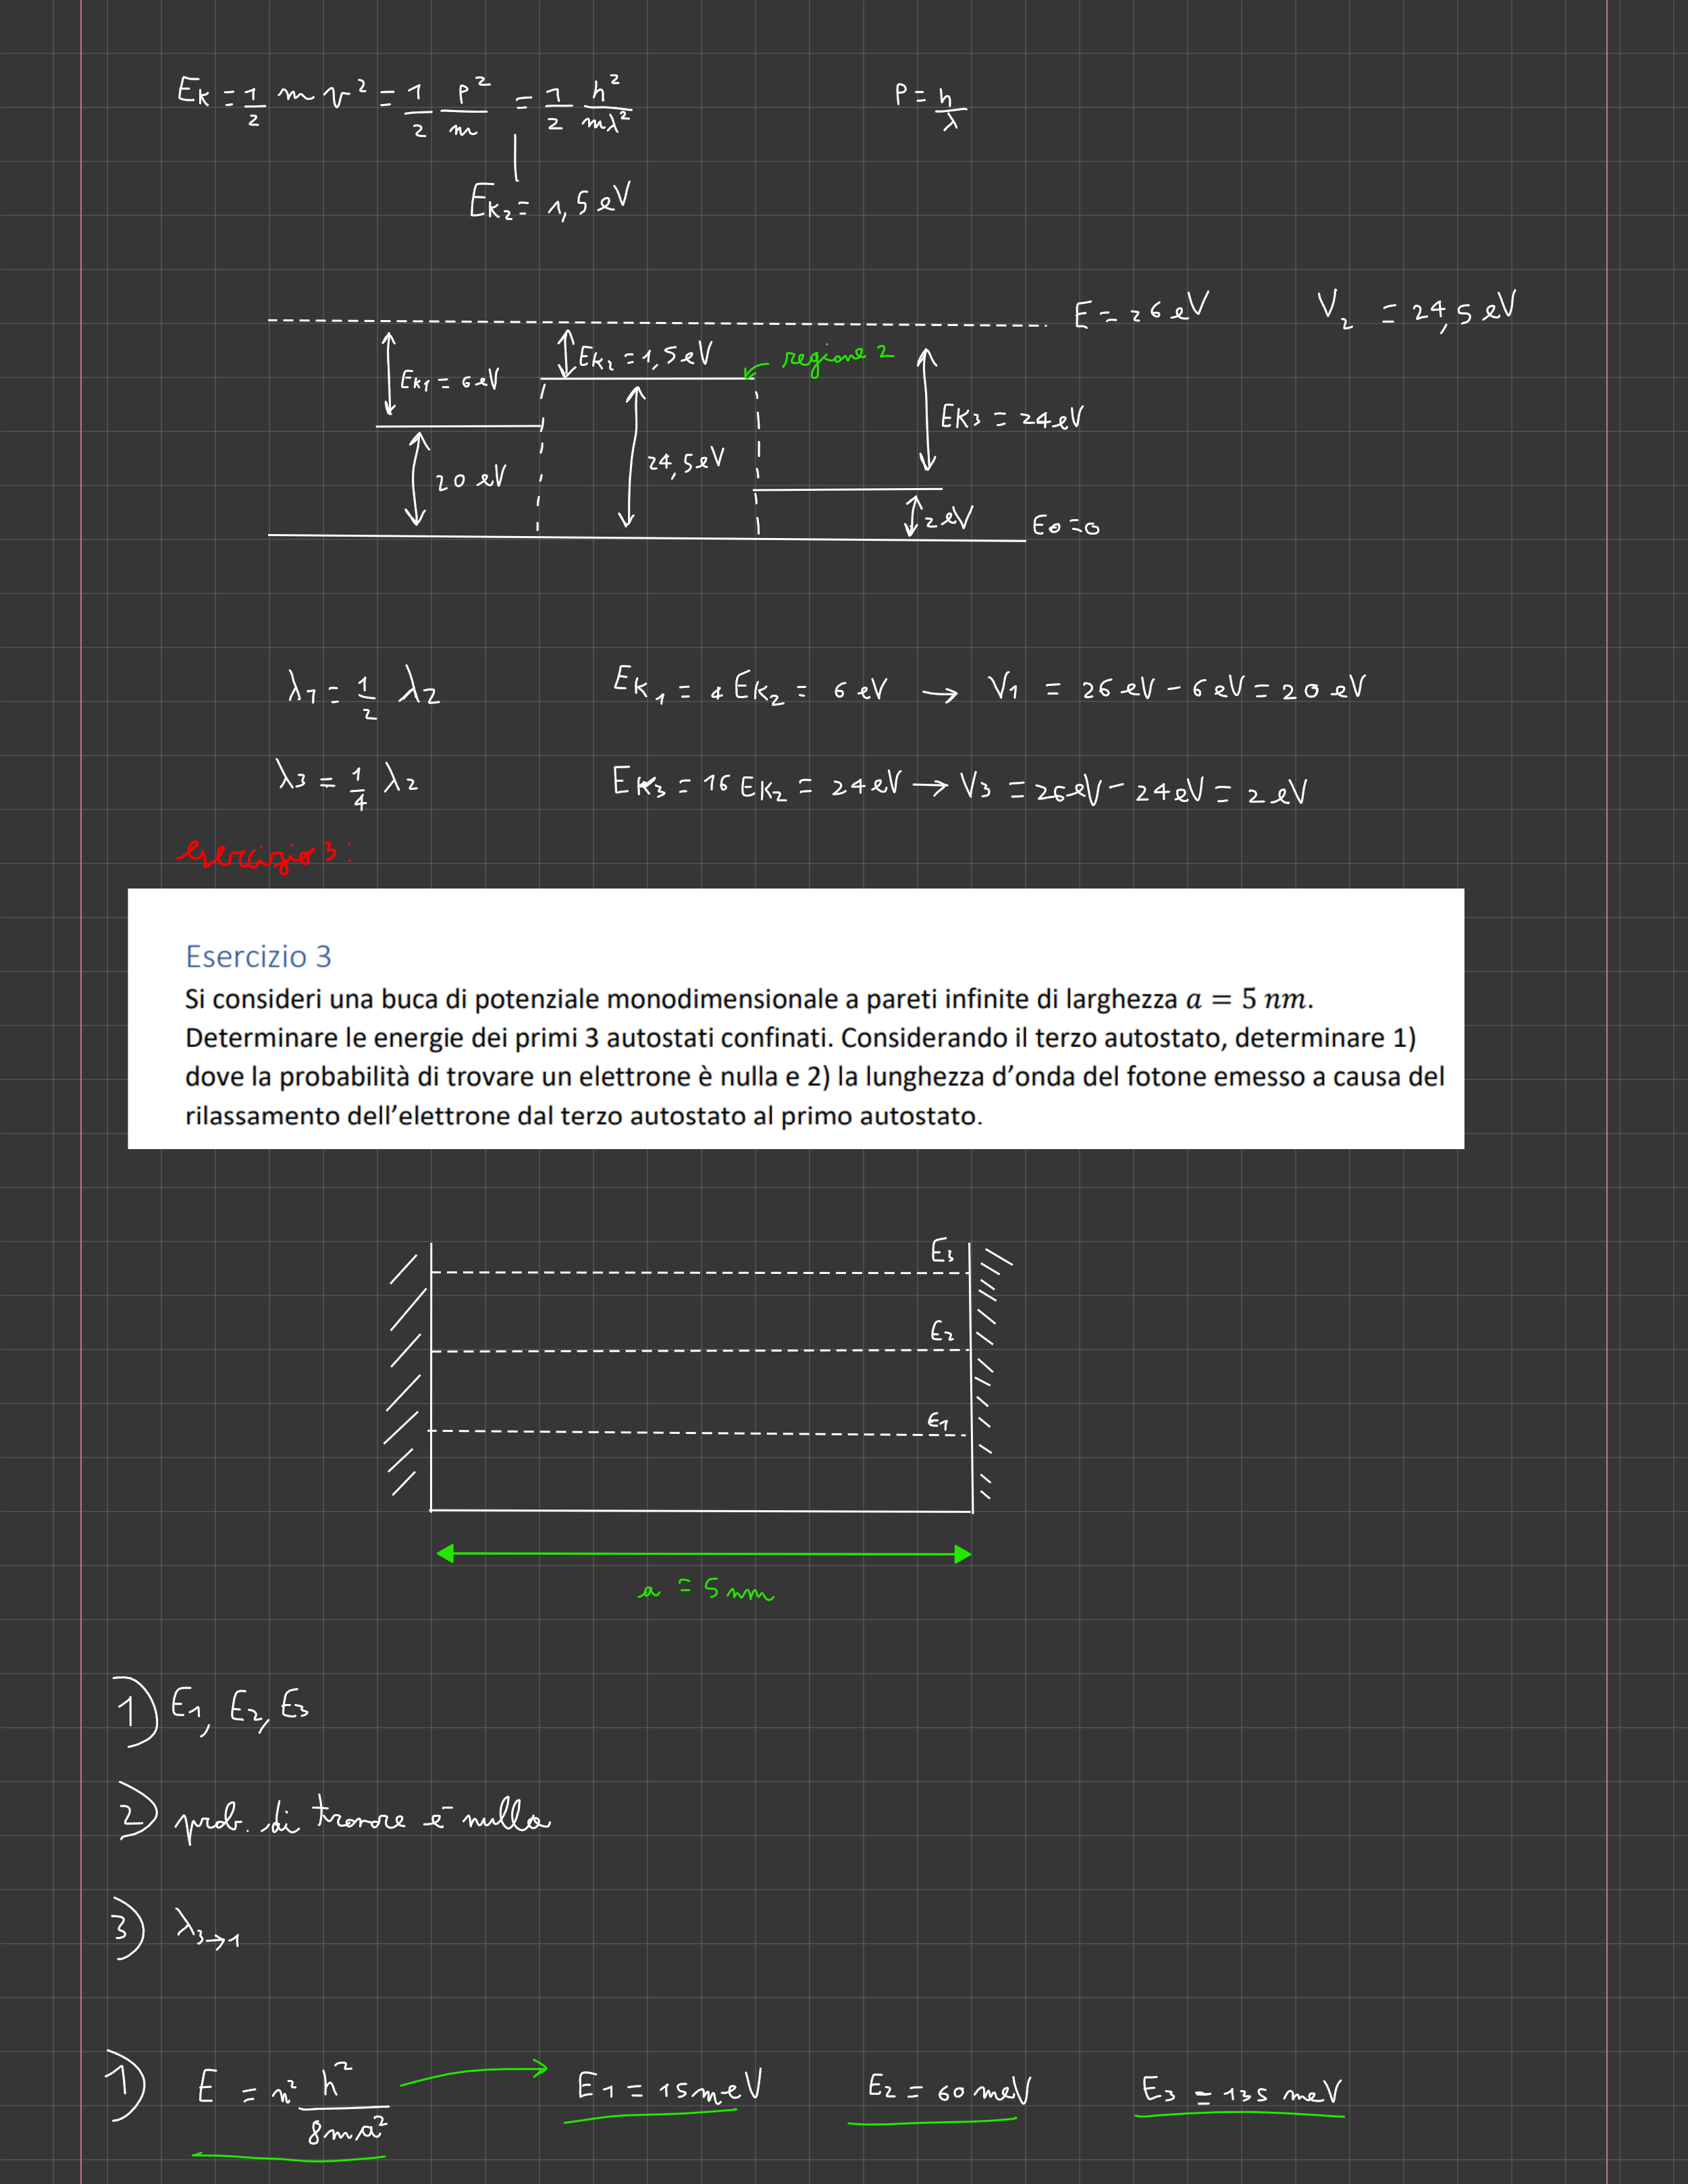 E_K = 1/2 m v² = 1/2 p²/m = 1/2 h²/mλ²    P = h/λ
E_K2 = 1,5 eV
E = 26 eV    V_2 = 24,5 eV
E_K2 = 1,5 eV    regione 2
E_K1 = 6 eV
E_K3 = 24 eV
20 eV    24,5 eV
2 eV    E_0 = 0
λ_1 = 1/2 λ_2    E_K1 = 4 E_K2 = 6 eV → V_1 = 26 eV - 6 eV = 20 eV
λ_3 = 1/4 λ_2    E_K3 = 16 E_K2 = 24 eV → V_3 = 26 eV - 24 eV = 2 eV
esercizio 3:
Esercizio 3
Si consideri una buca di potenziale monodimensionale a pareti infinite di larghezza a = 5 nm.
Determinare le energie dei primi 3 autostati confinati. Considerando il terzo autostato, determinare 1)
dove la probabilità di trovare un elettrone è nulla e 2) la lunghezza d’onda del fotone emesso a causa del
rilassamento dell’elettrone dal terzo autostato al primo autostato.
E_3
E_2
E_1
a = 5 nm
1) E_1, E_2, E_3
2) prob. di trovare e⁻ nulla
3) λ_3→1
1) E = n² h²/8ma²    E_1 = 15 meV    E_2 = 60 meV    E_3 = 135 meV